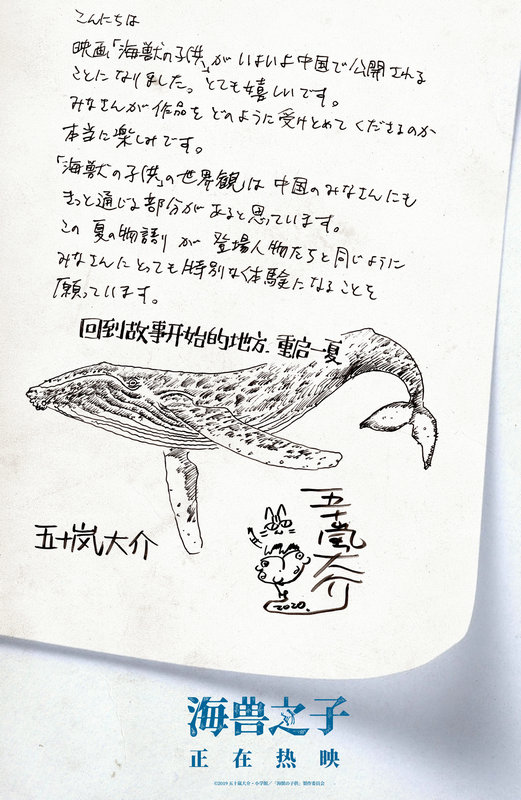 こんにちは
映画「海獣の子供」がいよいよ中国で公開される
ことになりました。とても嬉しいです。
みなさんが作品をどのように受けとめてくださるのか
本当に楽しみです。
「海獣の子供」の世界観は中国のみなさんにも
きっと通じる部分があると思っています。
この夏の物語りが登場人物たちと同じように
みなさんにとっても特別な体験になることを
願っています。
回到故事开始的地方.重启一夏
五十嵐大介
五十嵐大介
2020.
海兽之子
正在热映
©2019 五十嵐大介・小学館／「海獣の子供」製作委員会